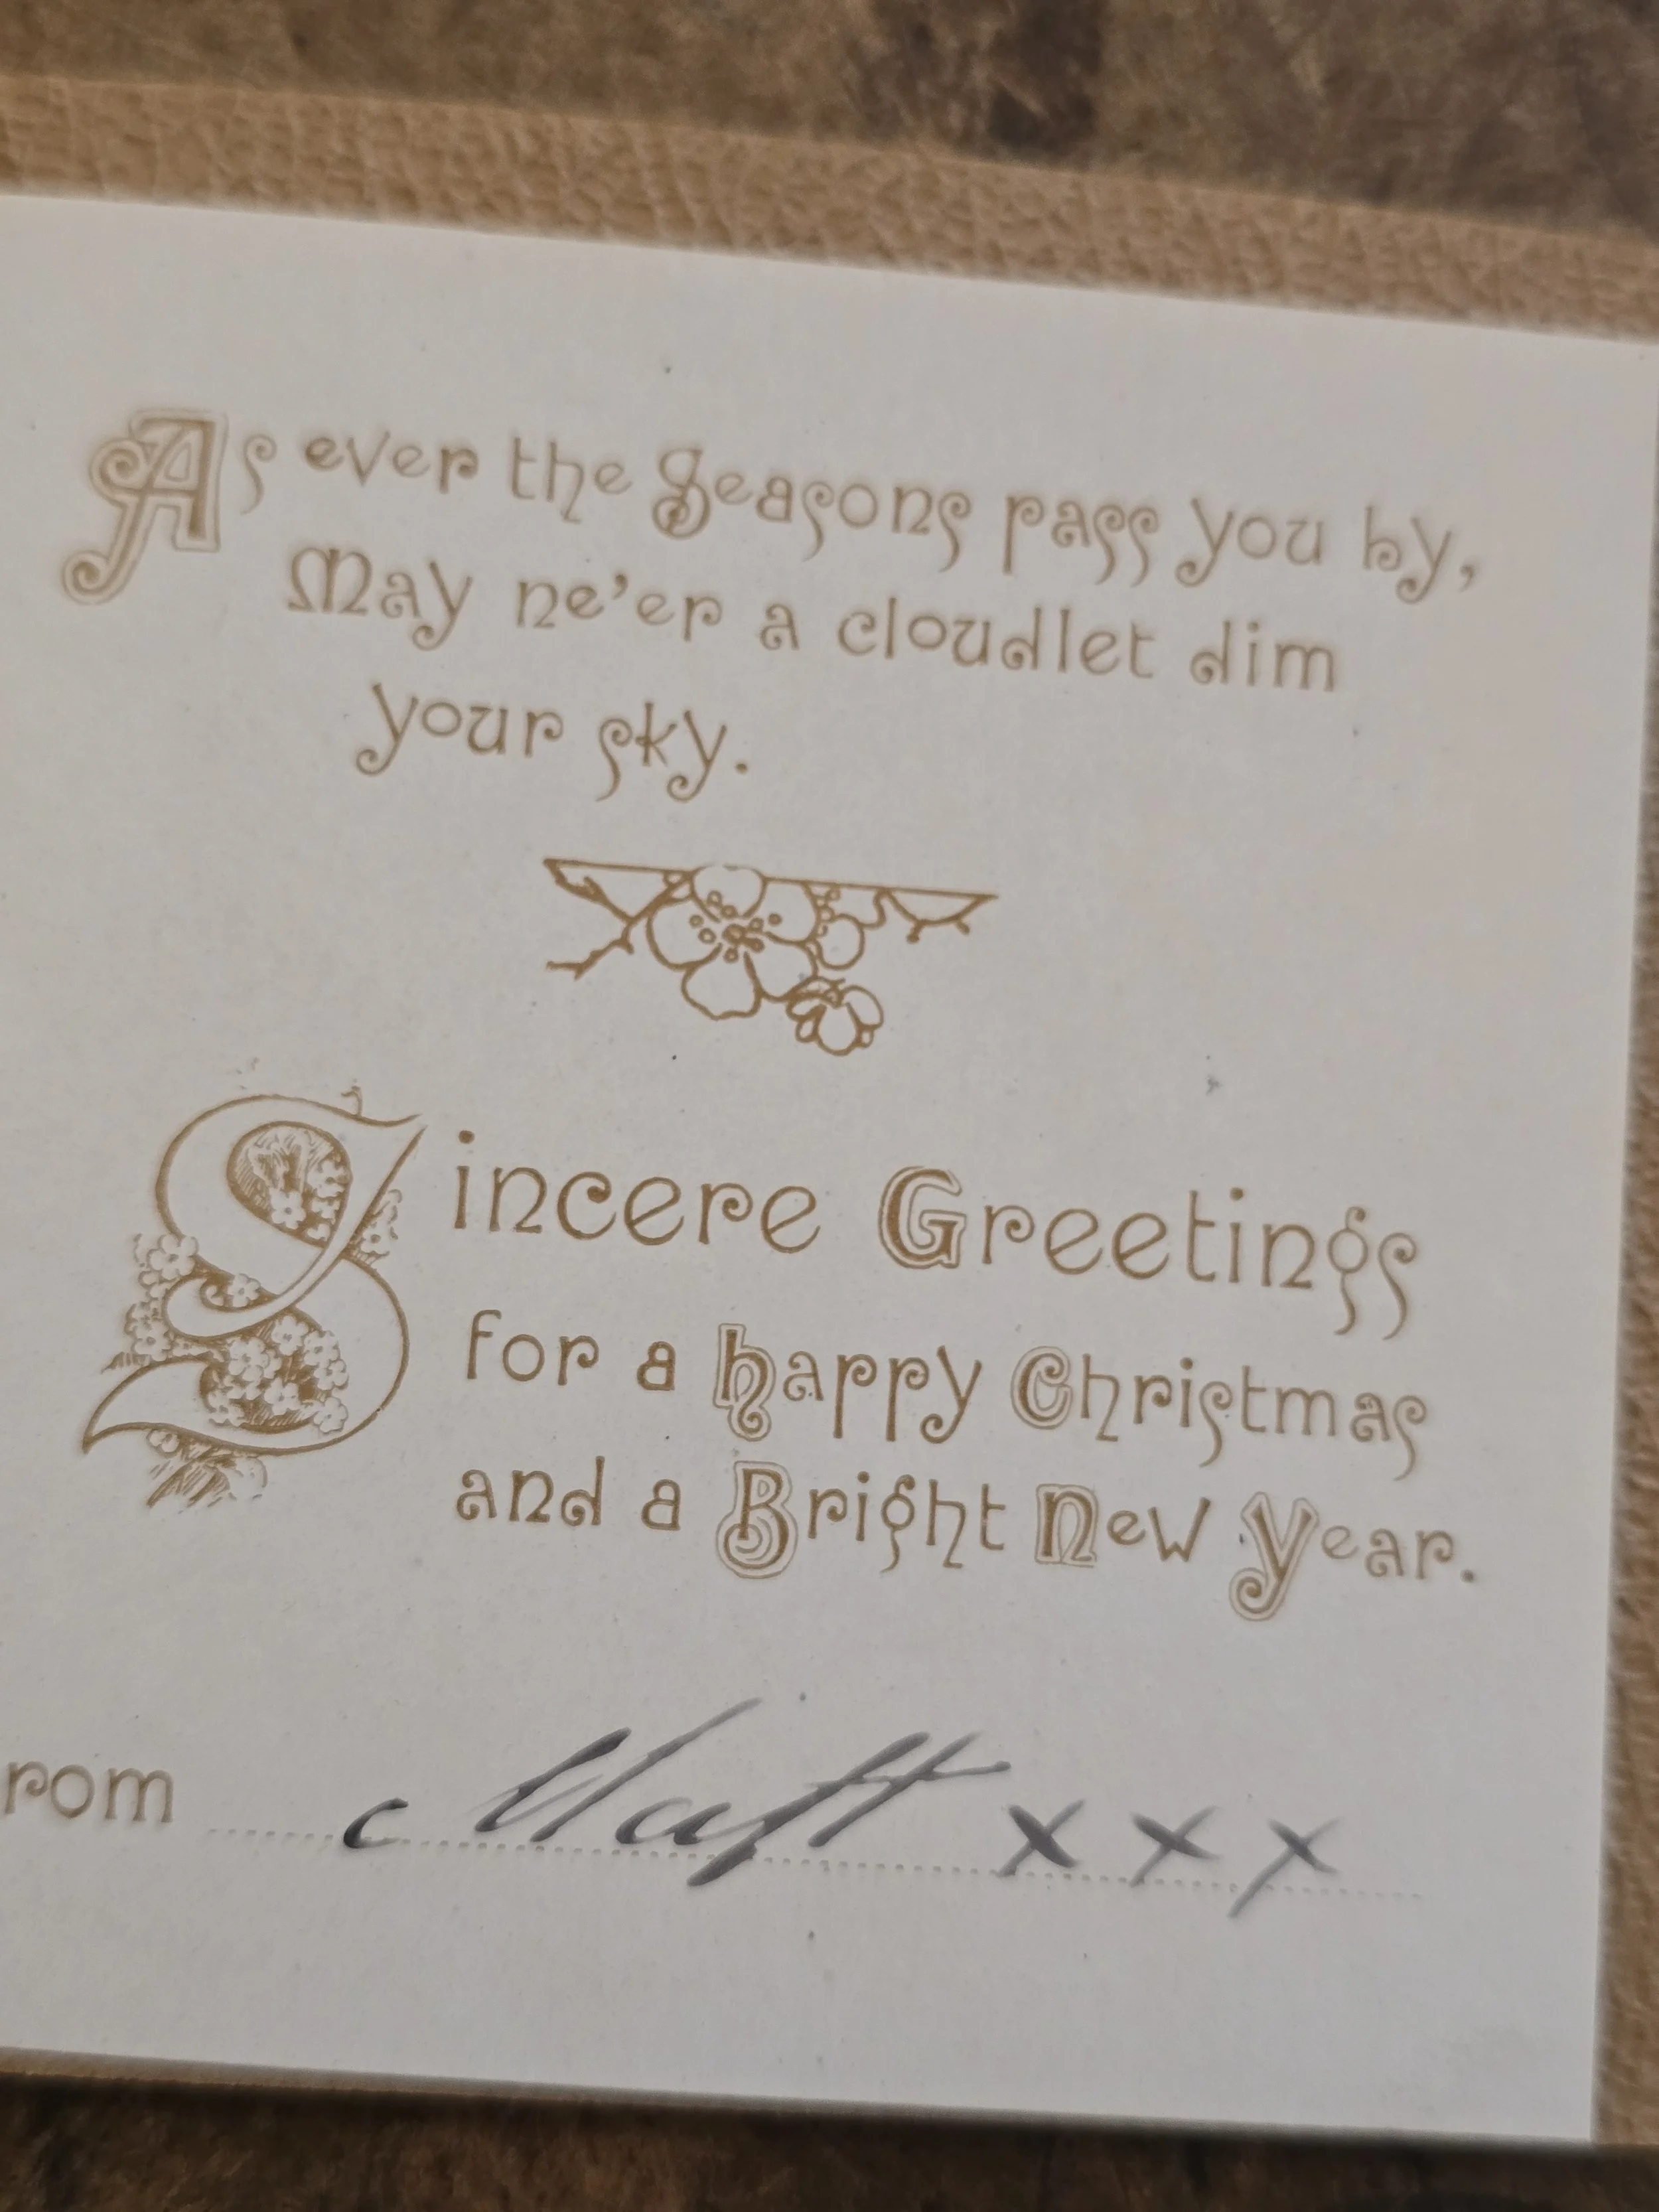 As ever the Seasons pass you by,
May ne'er a cloudlet dim
your sky.
Sincere Greetings
for a happy Christmas
and a Bright New Year.
rom Matt xxx